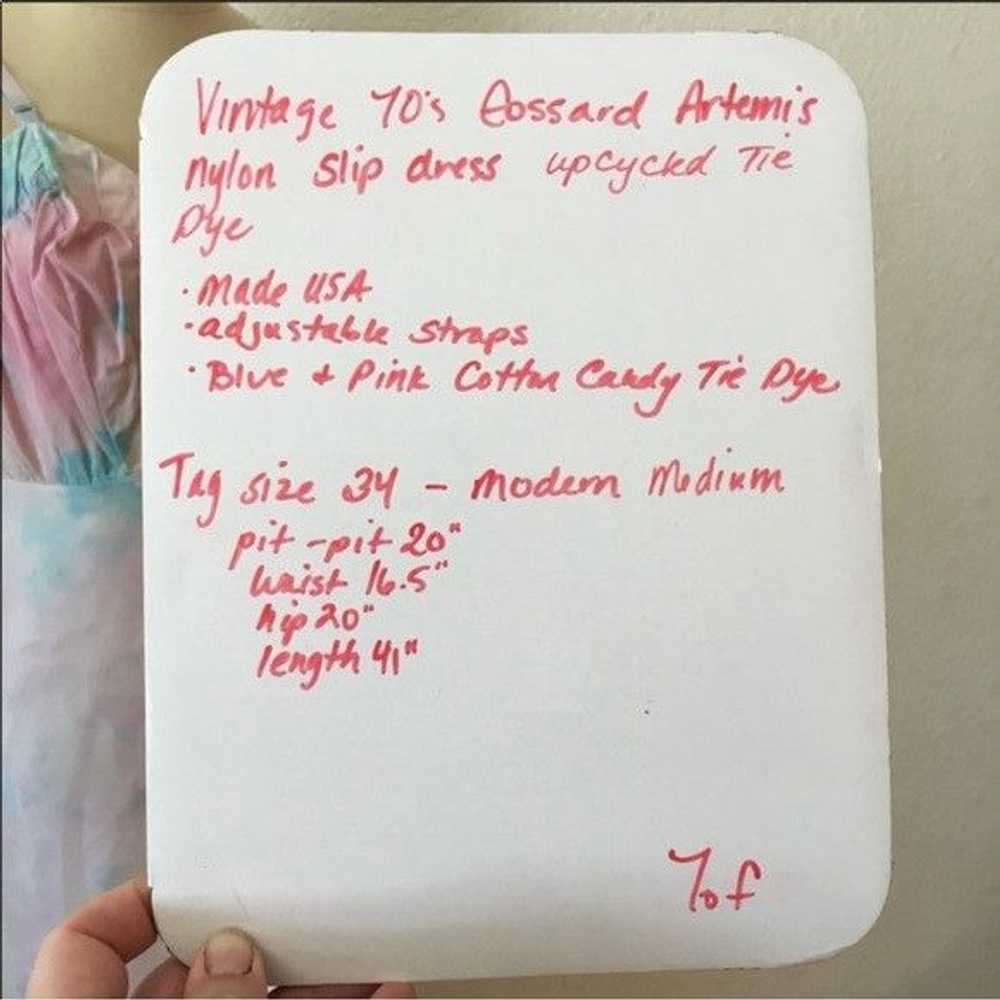 Vintage 70's Gossard Artemis
nylon slip dress upcycled Tie
Dye
· made USA
· adjustable straps
· Blue + Pink Cotton Candy Tie Dye
Tag size 34 - modern Medium
pit - pit 20"
waist 16.5"
hip 20"
length 41"